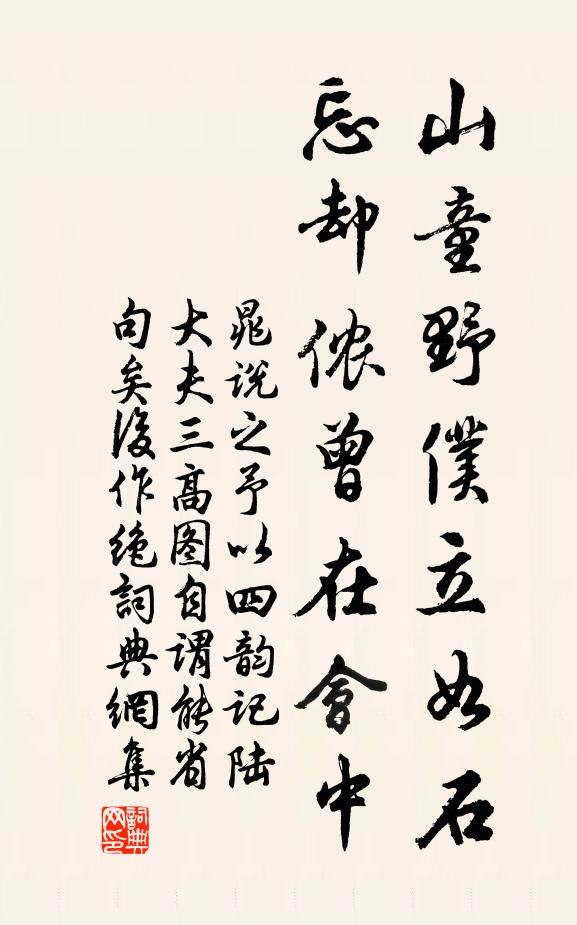 山童野僕立如石
忘却儂曾在會中
晁説之予以四韵记陆
大夫三高图自谓能省
句矣後作绝詞典網集
詞典网印